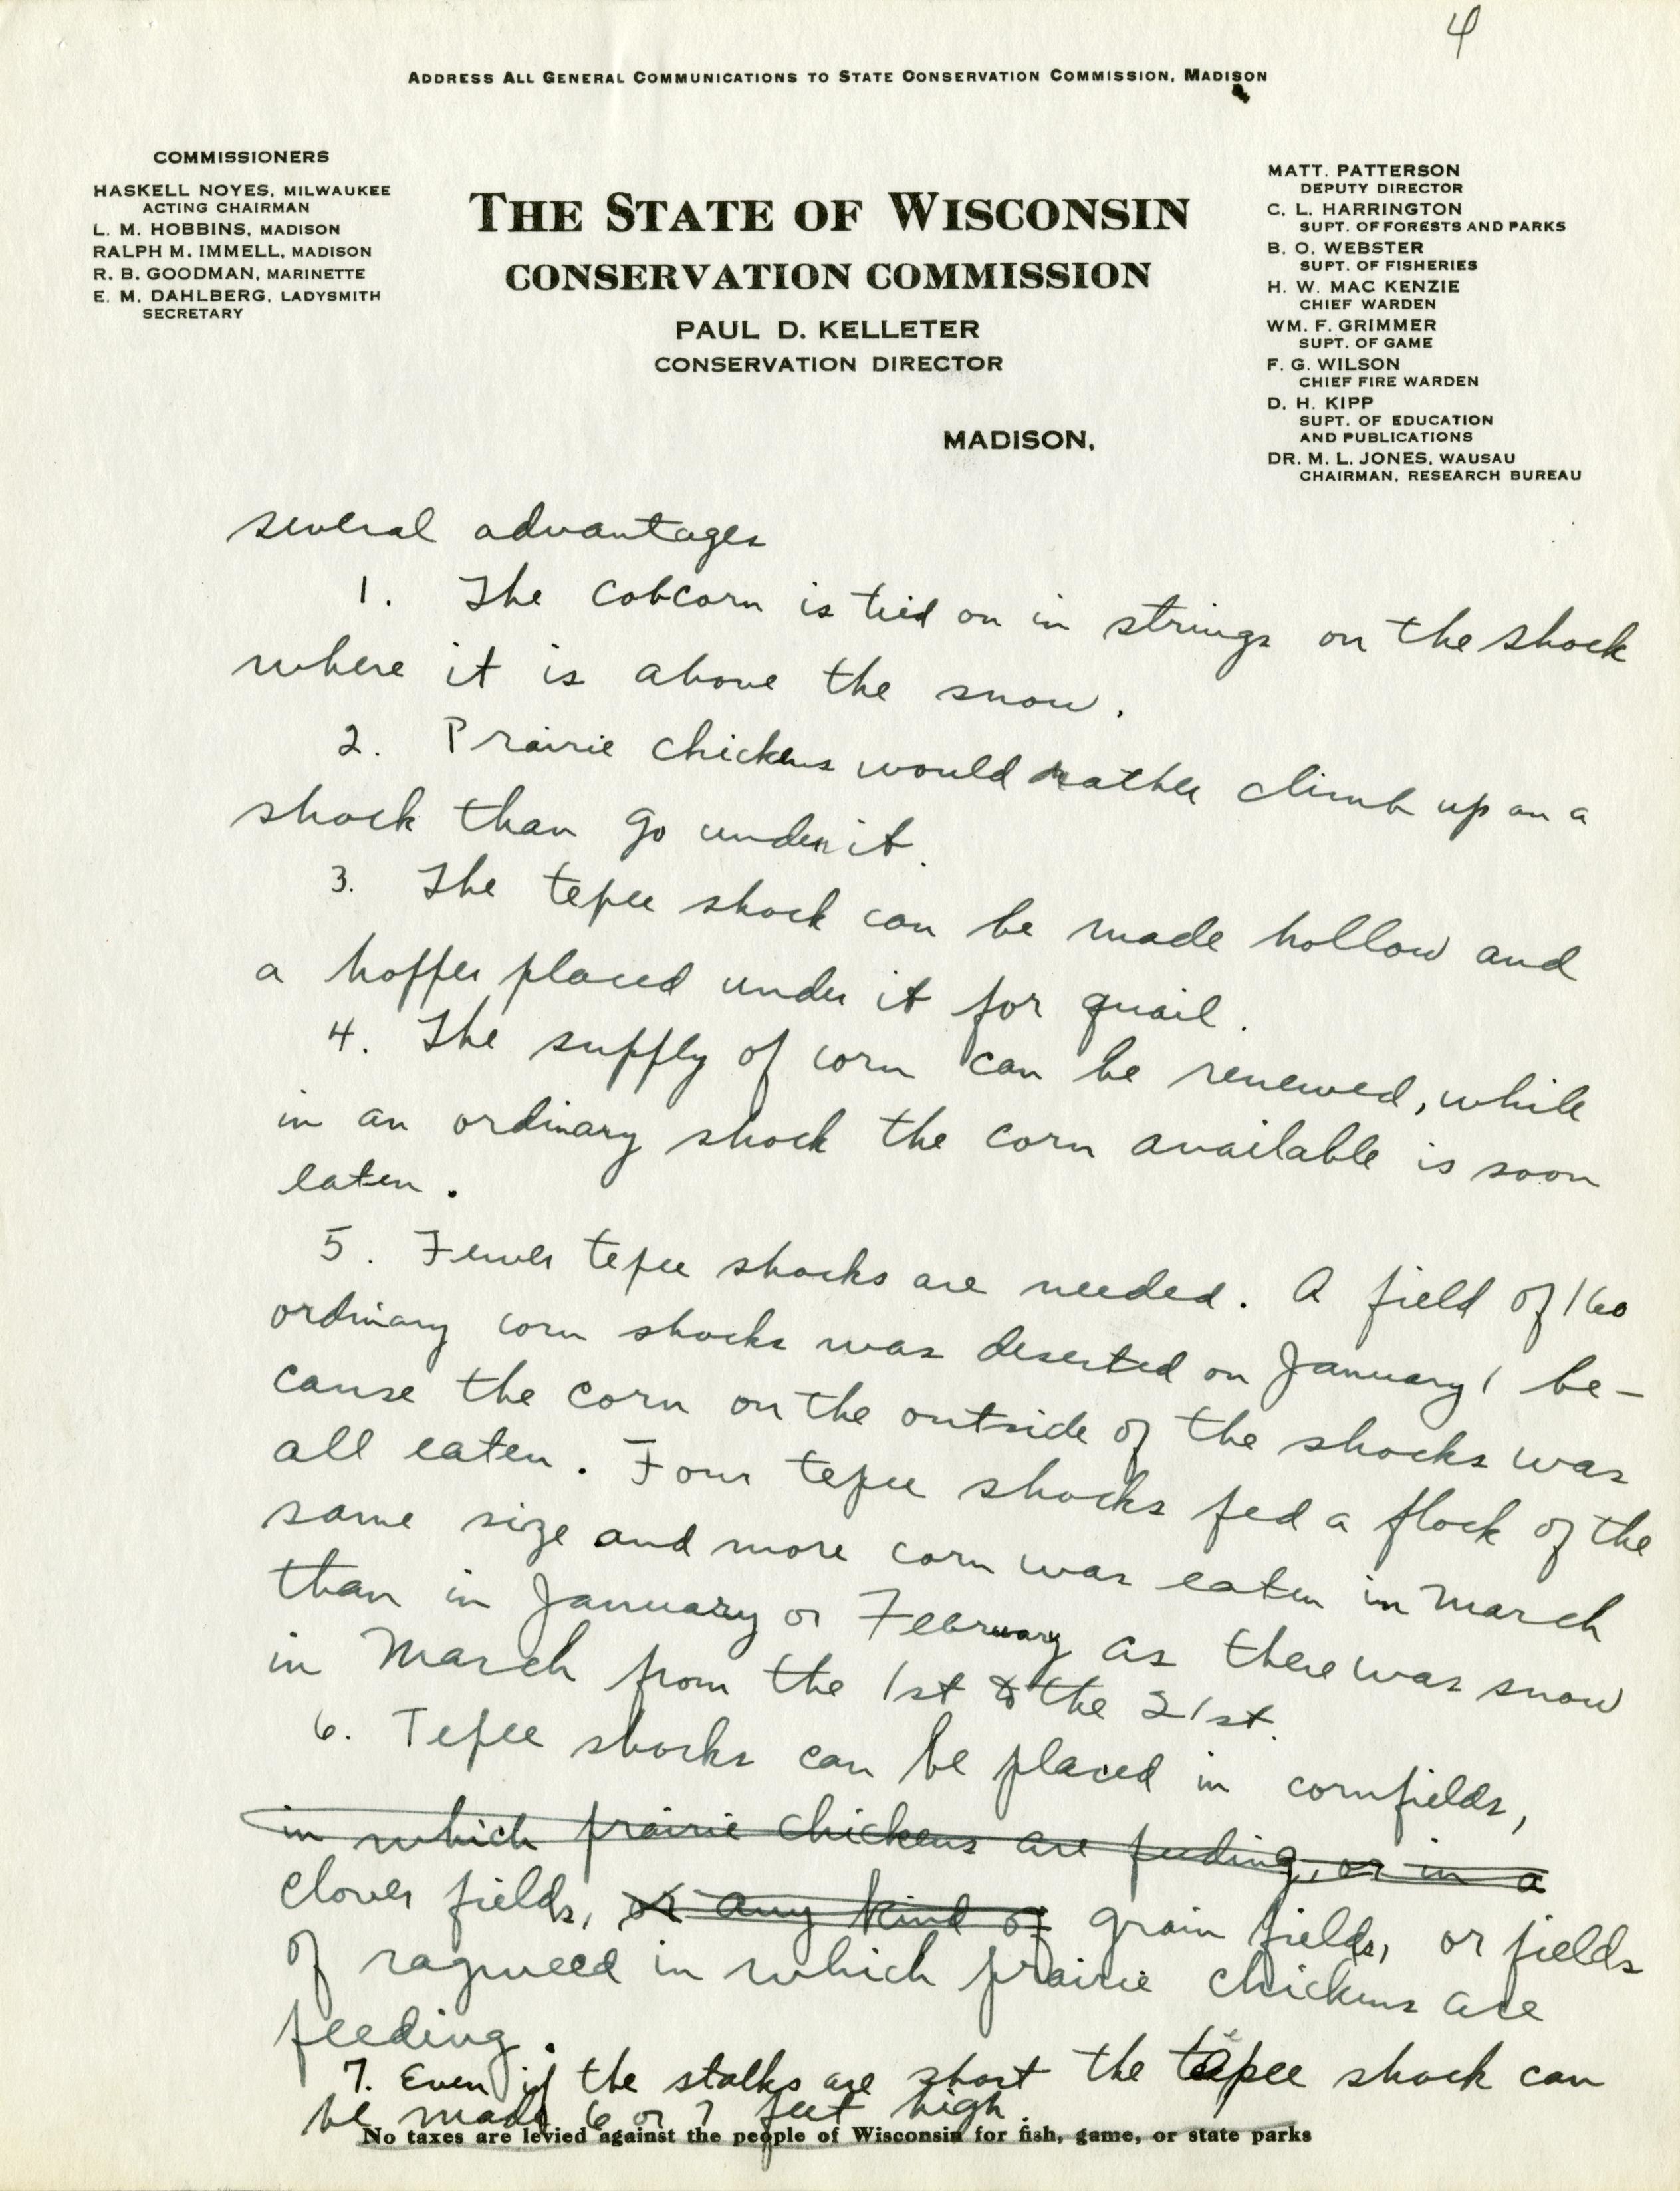 4
ADDRESS ALL GENERAL COMMUNICATIONS TO STATE CONSERVATION COMMISSION, MADISON
COMMISSIONERS
HASKELL NOYES, MILWAUKEE
ACTING CHAIRMAN
L. M. HOBBINS, MADISON
RALPH M. IMMELL, MADISON
R. B. GOODMAN, MARINETTE
E. M. DAHLBERG, LADYSMITH
SECRETARY
THE STATE OF WISCONSIN
CONSERVATION COMMISSION
PAUL D. KELLETER
CONSERVATION DIRECTOR
MADISON,
MATT. PATTERSON
DEPUTY DIRECTOR
C. L. HARRINGTON
SUPT. OF FORESTS AND PARKS
B. O. WEBSTER
SUPT. OF FISHERIES
H. W. MAC KENZIE
CHIEF WARDEN
WM. F. GRIMMER
SUPT. OF GAME
F. G. WILSON
CHIEF FIRE WARDEN
D. H. KIPP
SUPT. OF EDUCATION
AND PUBLICATIONS
DR. M. L. JONES, WAUSAU
CHAIRMAN, RESEARCH BUREAU
several advantages
1. The cobcorn is tied on in strings on the shock
where it is above the snow.
2. Prairie chickens would rather climb up on a
shock than go under it.
3. The tepee shock can be made hollow and
a hopper placed under it for quail.
4. The supply of corn can be renewed, while
in an ordinary shock the corn available is soon
eaten.
5. Fewer tepee shocks are needed. A field of 160
ordinary corn shocks was deserted on January 1 be-
cause the corn on the outside of the shocks was
all eaten. Four tepee shocks fed a flock of the
same size and more corn was eaten in March
than in January or February as there was snow
in March from the 1st to the 21st.
6. Tepee shocks can be placed in cornfields,
in which prairie chickens are feeding, or in a
clover fields, or any kind of grain fields, or fields
of ragweed in which prairie chickens are
feeding.
7. Even if the stalks are short the tepee shock can
be made 6 or 7 feet high.
No taxes are levied against the people of Wisconsin for fish, game, or state parks